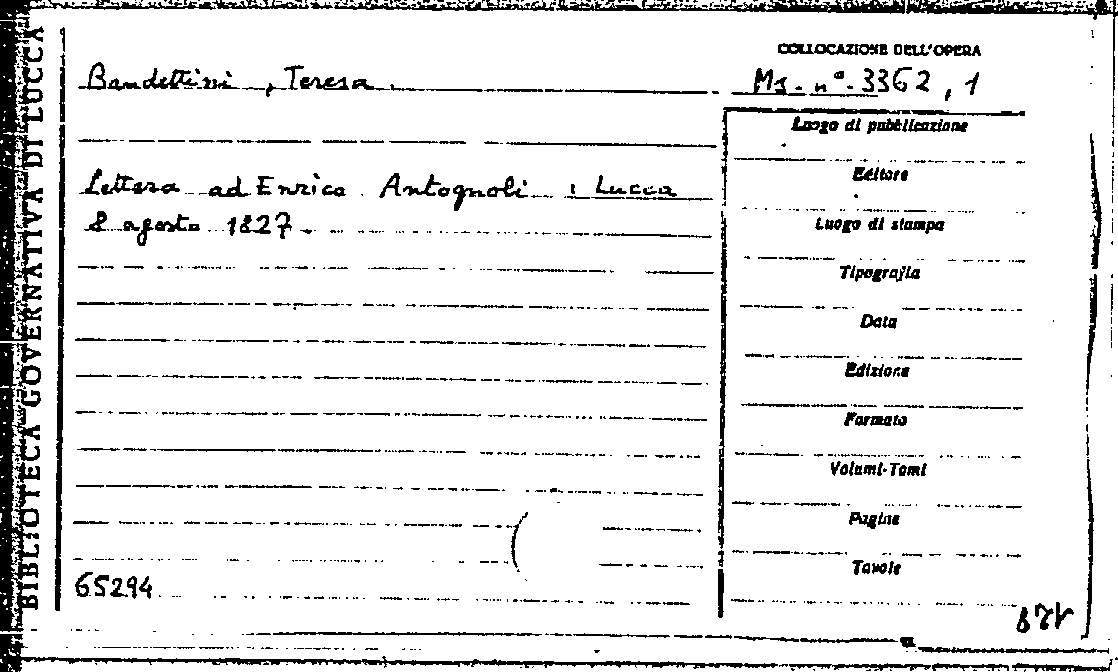 BIBLIOTECA GOVERNATIVA DI LUCCA
COLLOCAZIONE DELL'OPERA
Ms. n°. 3362, 1
Bandettini, Teresa.
Lettera ad Enrico Antognoli : Lucca
8 agosto 1827.
Luogo di pubblicazione
Editore
Luogo di stampa
Tipografia
Data
Edizione
Formato
Volumi-Tomi
Pagine
Tavole
65294